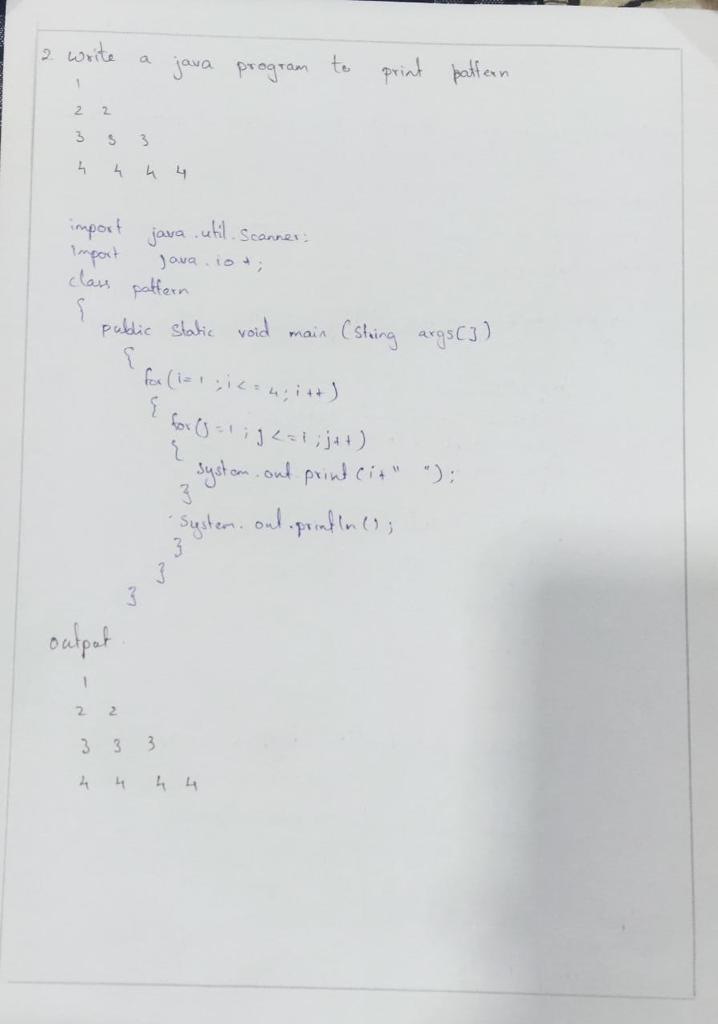 2 Write a java program to print pattern
1
2 2
3 3 3
4 4 4 4
import java.util.Scanner:
Import java.io *;
class pattern
{
public static void main (String args[])
{
for(i=1;i<=4;i++)
{
for(j=1;j<=i;j++)
{
system.out.print(i+" ");
}
System.out.println();
}
}
}
output
1
2 2
3 3 3
4 4 4 4